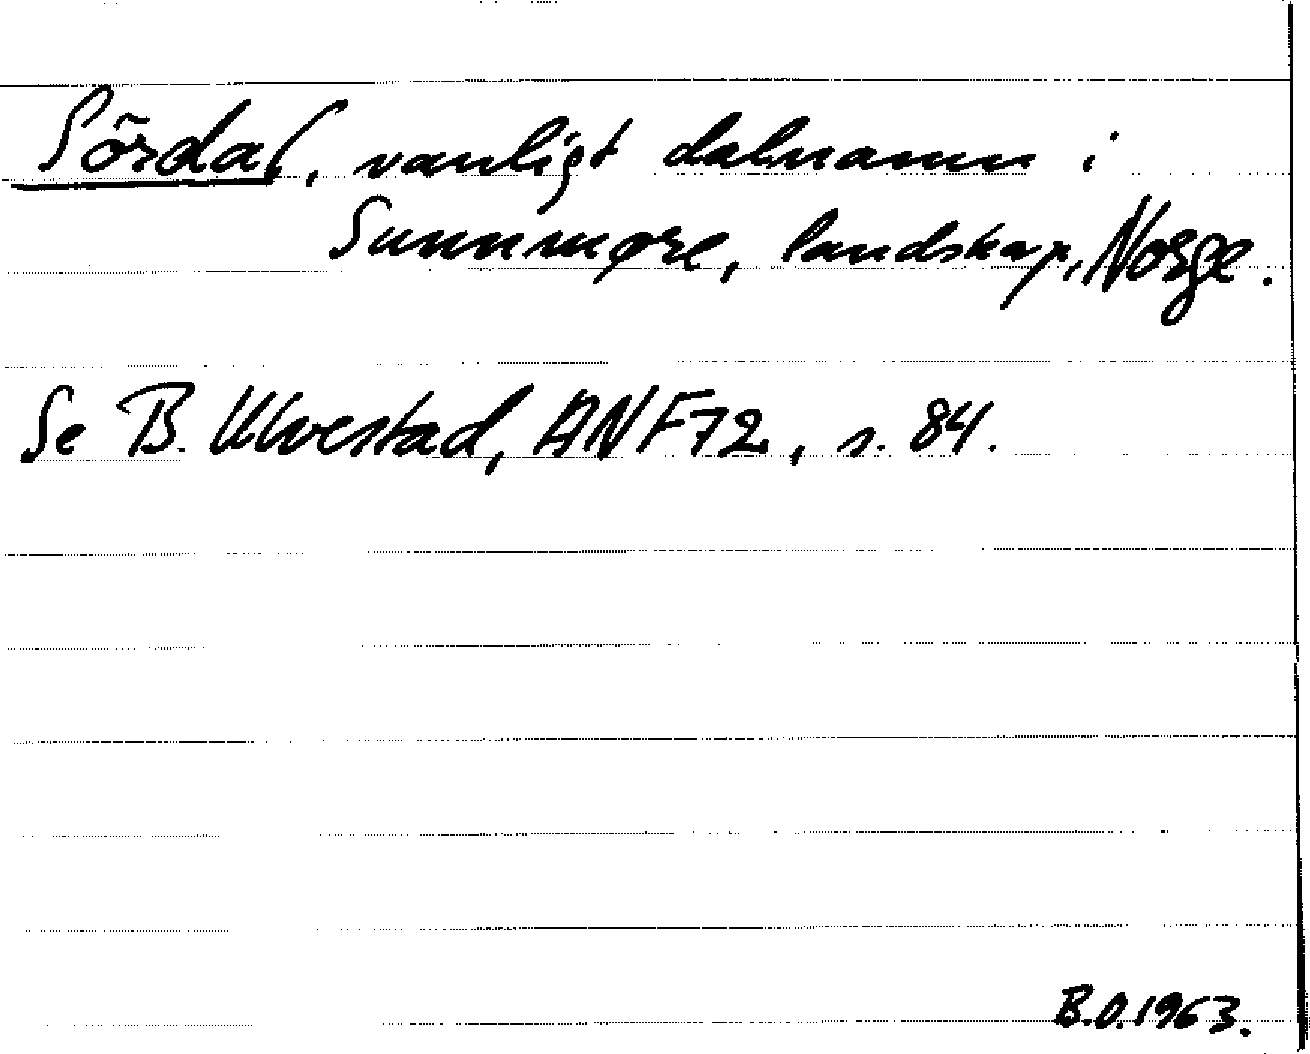 Sördal, vanligt dalnamn i
Sunnmøre, landskap, Norge.
Se B. Ulvestad, ANF 72, s. 84.
B.O. 1963.